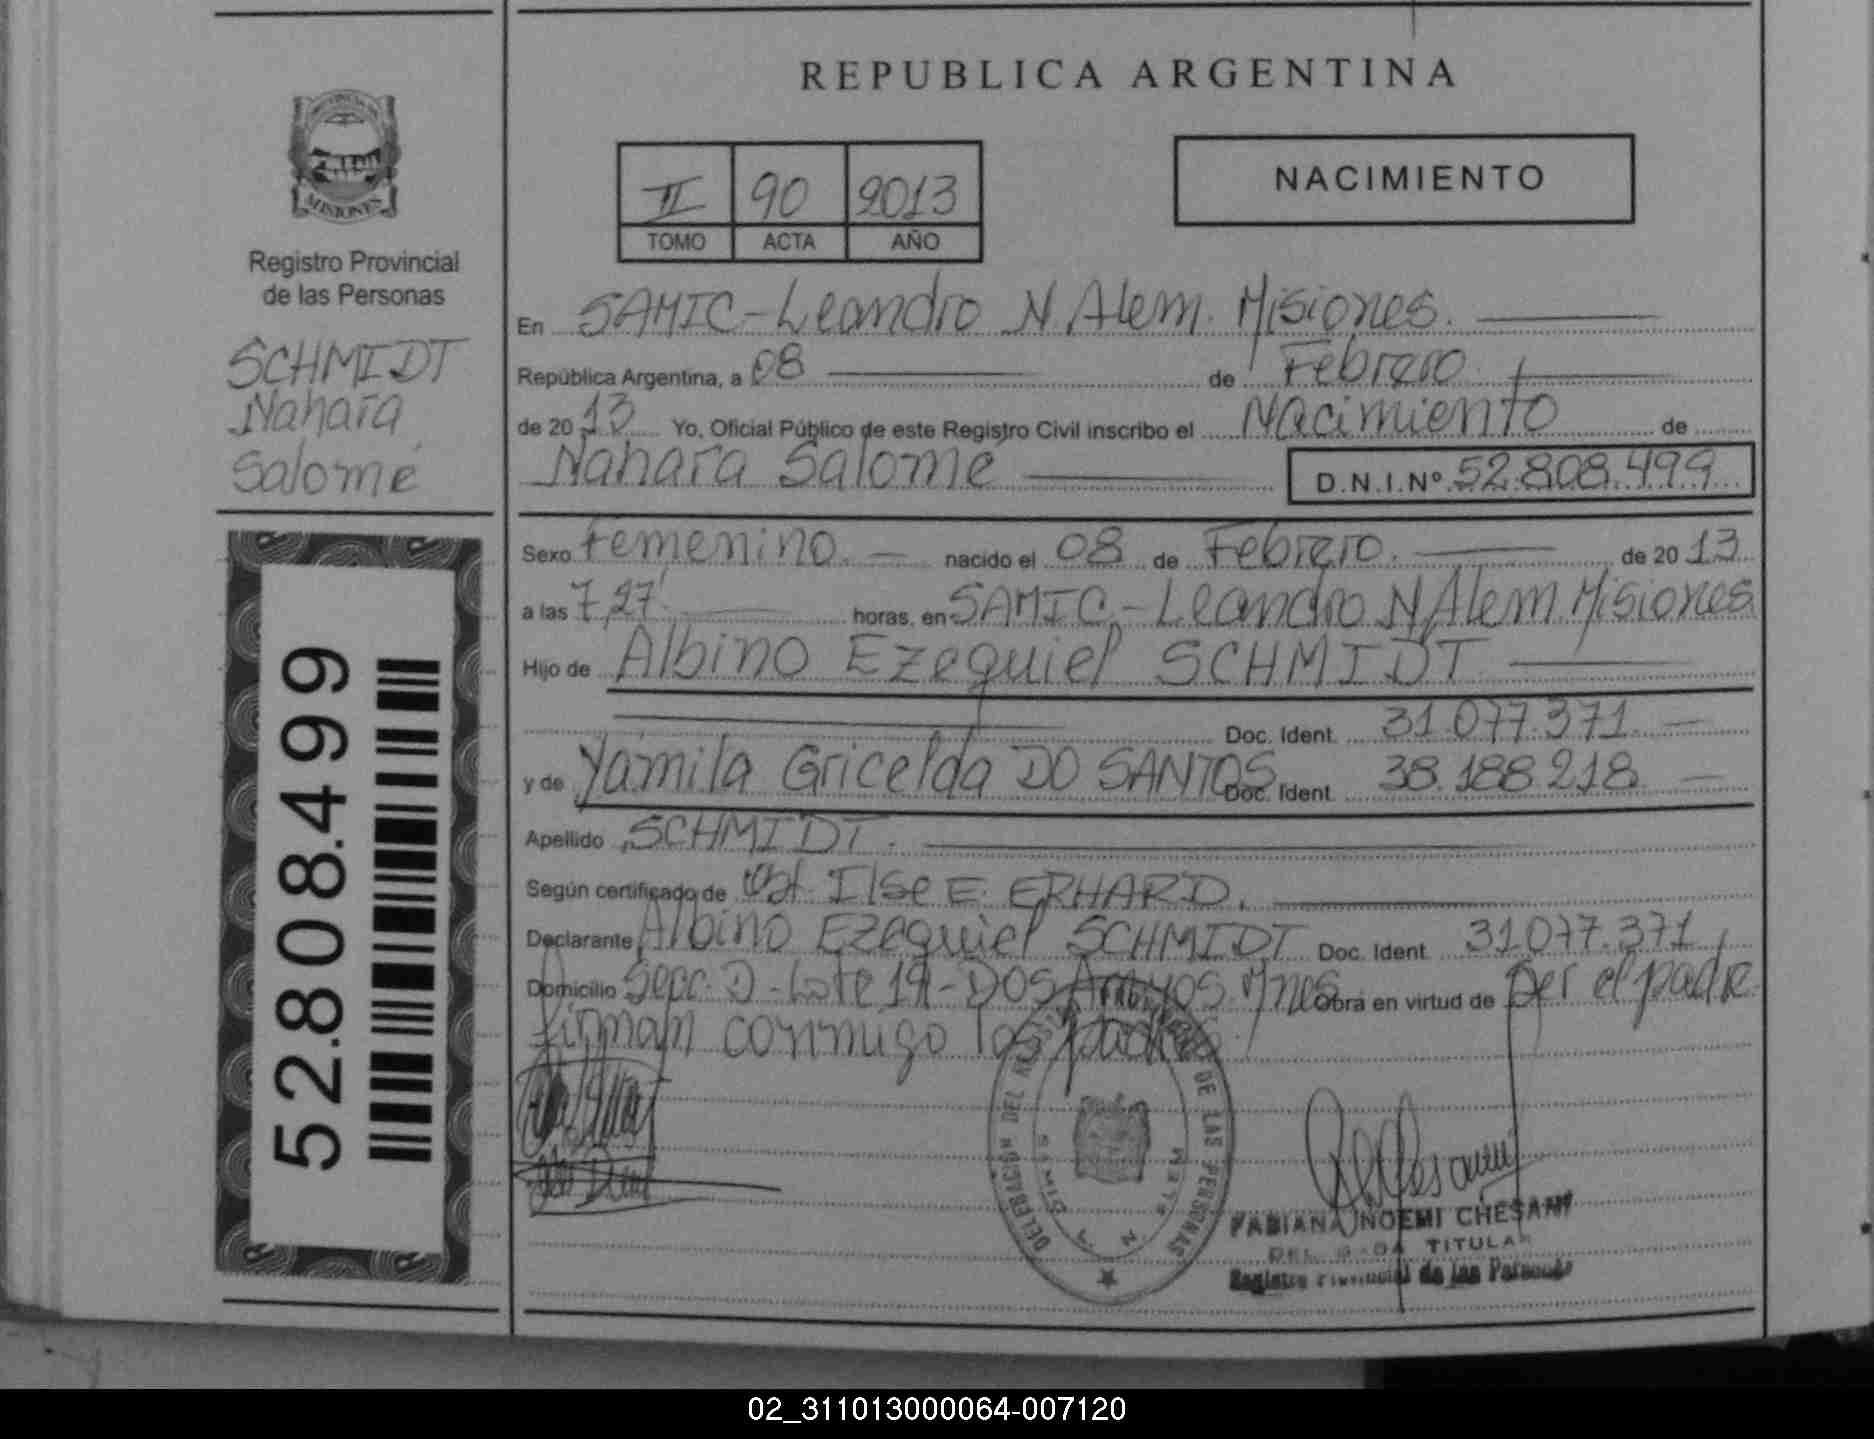 REPUBLICA ARGENTINA
MISIONES
Registro Provincial
de las Personas
SCHMIDT
Nahara
Salomé
52.808.499
II 90 2013
TOMO ACTA AÑO
NACIMIENTO
En SAMIC-Leandro N. Alem. Misiones.
República Argentina, a 08 de Febrero
de 2013 Yo, Oficial Público de este Registro Civil inscribo el Nacimiento de
Nahara Salomé D.N.I.Nº 52.808.499
Sexo Femenino. nacido el 08 de Febrero. de 2013
a las 7,27' horas, en SAMIC.-Leandro N. Alem. Misiones
Hijo de Albino Ezequiel SCHMIDT
Doc. Ident. 31.077.371
y de Yamila Gricelda DO SANTOS Doc. Ident. 38.188.218
Apellido SCHMIDT.
Según certificado de Obst. Ilse E. ERHARD.
Declarante Albino Ezequiel SCHMIDT Doc. Ident. 31.077.371
Domicilio Secc. D - Lote 19 - DOS Arroyos. Mnes Obra en virtud de ser el padre
firman conmigo los padres
DE LAS PERSONAS
FABIANA NOEMI CHESANI
TITULAR
Registro Provincial de las Personas
02_311013000064-007120